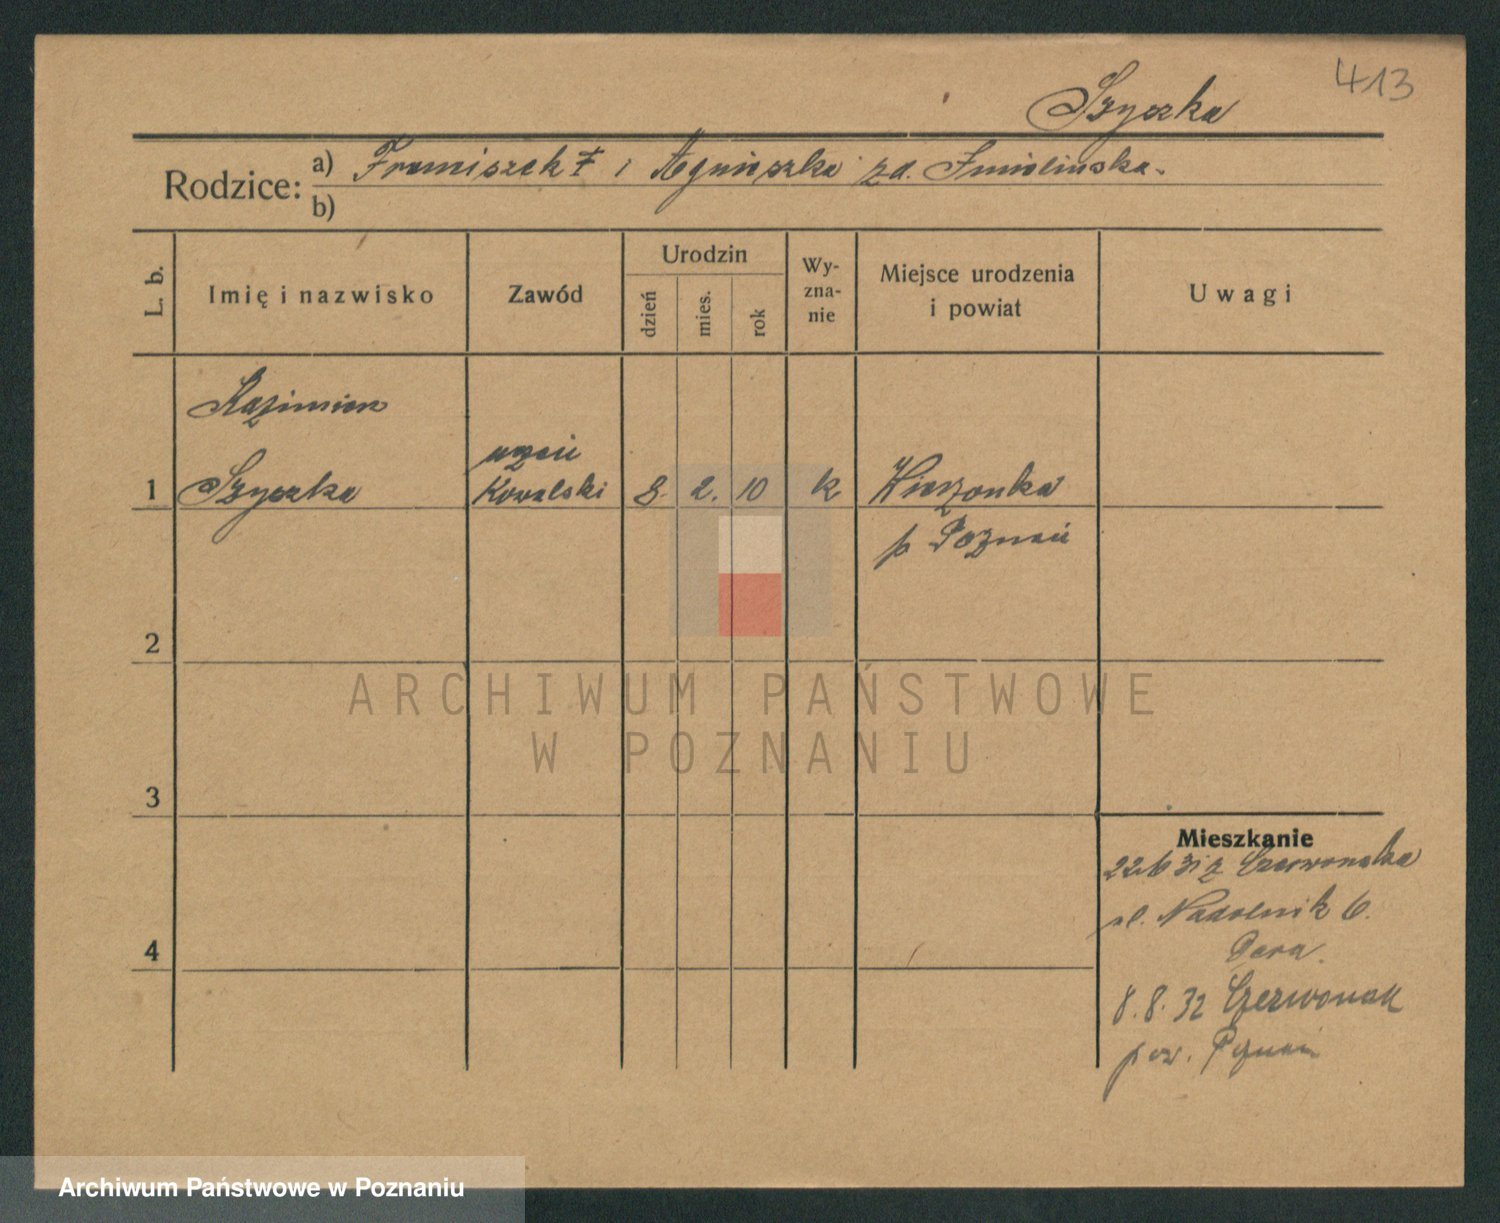 413
Szyczka
Rodzice: a) Franciszek ✝ i Agnieszka zd. Smielińska.
b)
L. b.
Imię i nazwisko
Zawód
Urodzin
dzień
mies.
rok
Wy-
zna-
nie
Miejsce urodzenia
i powiat
Uwagi
Kazimierz
uczeń
1 Szyczka Kowalski 8. 2. 10 k Wierzonka
p Poznań
2
ARCHIWUM PAŃSTWOWE
W POZNANIU
3
Mieszkanie
22.6 31 z Czerwonaka
ul. Nadolnik 6.
4
8.8.32 Czerwonak
pow. Poznań
Archiwum Państwowe w Poznaniu